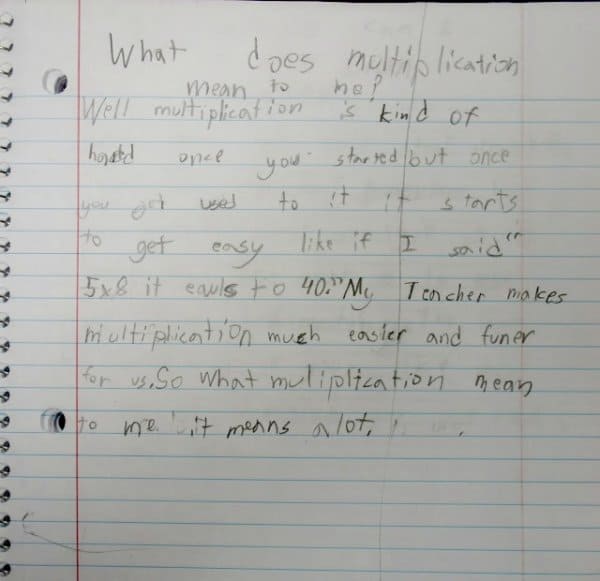 What does multiplication
mean to me?
Well multiplication is kind of
hard once you started but once
you get used to it it starts
to get easy like if I said"
5x8 it eauls to 40." My Teacher makes
multiplication much easier and funer
for us. So What muliplication mean
to me it means a lot.